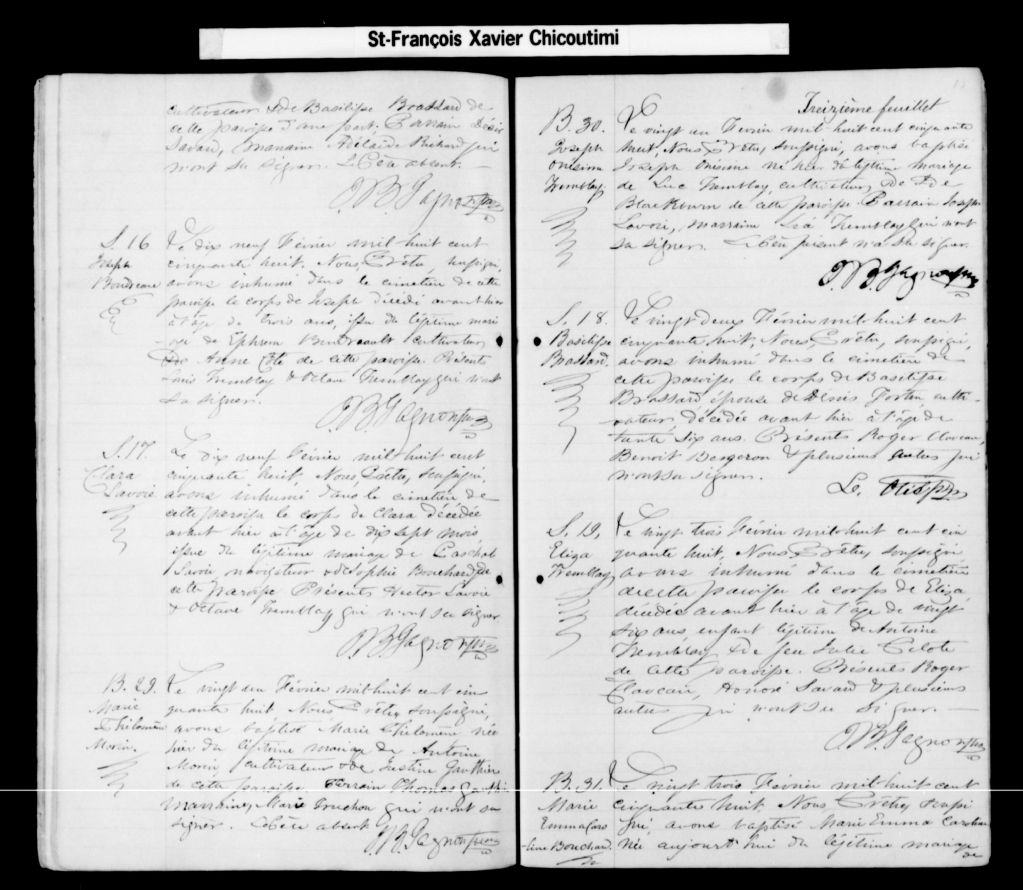 St-François Xavier Chicoutimi
cultivateur & de Basilisse Brassard de
cette paroisse d'une part; Parrain Désiré
Savard, Marraine Adélaïde Richard qui
n'ont su signer. Le Père absent.
J. B. Gagnon ptre
S. 16
Joseph
Boudreault
Le dix neuf Février mil huit cent
cinquante huit, Nous Prêtre, soussigné,
avons inhumé dans le cimetière de cette
paroisse le corps de Joseph décédé avant hier
à l'âge de trois ans, issu du légitime mari
-age de Ephrem Boudreault cultivateur
& de Anne Côté de cette paroisse. Présents
Louis Tremblay & Octave Tremblay qui n'ont
su signer.
J. B. Gagnon ptre
S. 17.
Clara
Savoie
Le dix neuf Février mil huit cent
cinquante huit, Nous Prêtre, soussigné,
avons inhumé dans le cimetière de
cette paroisse le corps de Clara décédée
avant hier à l'âge de dix sept mois,
issue du légitime mariage de Paschal
Savoie navigateur & de Sophie Bouchard de
cette paroisse. Présents Nector Savoie
& Octave Tremblay qui n'ont su signer
J. B. Gagnon ptre
B. 29.
Marie
Philomène
Morin.
Le vingt un Février mil huit cent cin
quante huit Nous Prêtre soussigné,
avons baptisé Marie Philomène née
hier du légitime mariage de Antoine
Morin cultivateur & de Justine Gauthier
de cette paroisse. Parrain Thomas Gauthier
marraine, Marie Truchon qui n'ont su
signer. Le Père absent
J. B. Gagnon ptre
Treizième feuillet
B. 30.
Joseph
Onésime
Tremblay
Le vingt un Février mil-huit cent cinquante
huit, Nous Prêtre, soussigné, avons baptisé
Joseph Onésime né hier du légitime mariage
de Luc Tremblay, cultivateur, & de
Blackburn de cette paroisse. Parrain Joseph
Savoie, marraine Tremblay qui n'ont
su signer. Le Père présent n'a su signer.
J. B. Gagnon ptre
S. 18.
Basilisse
Brassard.
Le vingt deux Février mil-huit cent
cinquante huit, Nous Prêtre, soussigné,
avons inhumé dans le cimetière de
cette paroisse le corps de Basilisse
Brassard épouse de Denis Fortin, culti-
vateur, décédée avant hier à l'âge de
trente six ans. Présents Roger Claveau,
Benoit Bergeron & plusieurs autres qui
n'ont su signer.
Ls. Otis ptre
S. 19.
Eliza
Tremblay
Le vingt trois Février mil-huit cent cin
quante huit, Nous Prêtre, soussigné
avons inhumé dans le cimetière
de cette paroisse le corps de Eliza,
décédée avant hier à l'âge de vingt
six ans, enfant légitime de Antoine
Tremblay & de feu Julie Pilote
de cette paroisse. Présents Roger
Claveau, Honoré Savard & plusieurs
autres qui n'ont su signer.
J. B. Gagnon ptre
B. 31.
Marie
Emma Caro
-line Bouchard.
Le vingt trois Février mil huit cent
cinquante huit Nous Prêtre, soussi
gné, avons baptisé Marie Emma Caroline
née aujourd'hui du légitime mariage
de